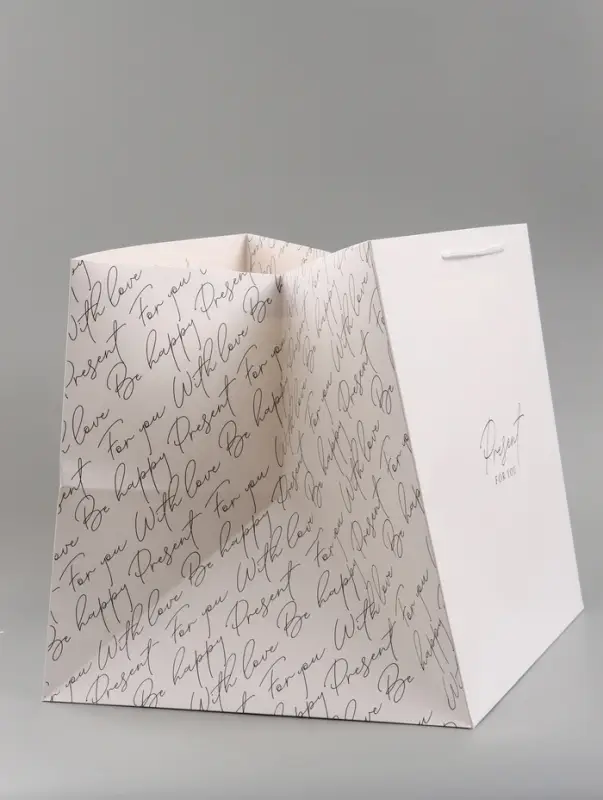 With love
Present For you
love Be happy Present
For you With love Be
love Be happy Present For you
For you With love Be happy
Be happy Present For you With love
you With love Be happy Present
Present For you With love
Be happy Present For you
With love Be happy Present
For you With love
Present For you
With love Be
Present
FOR YOU